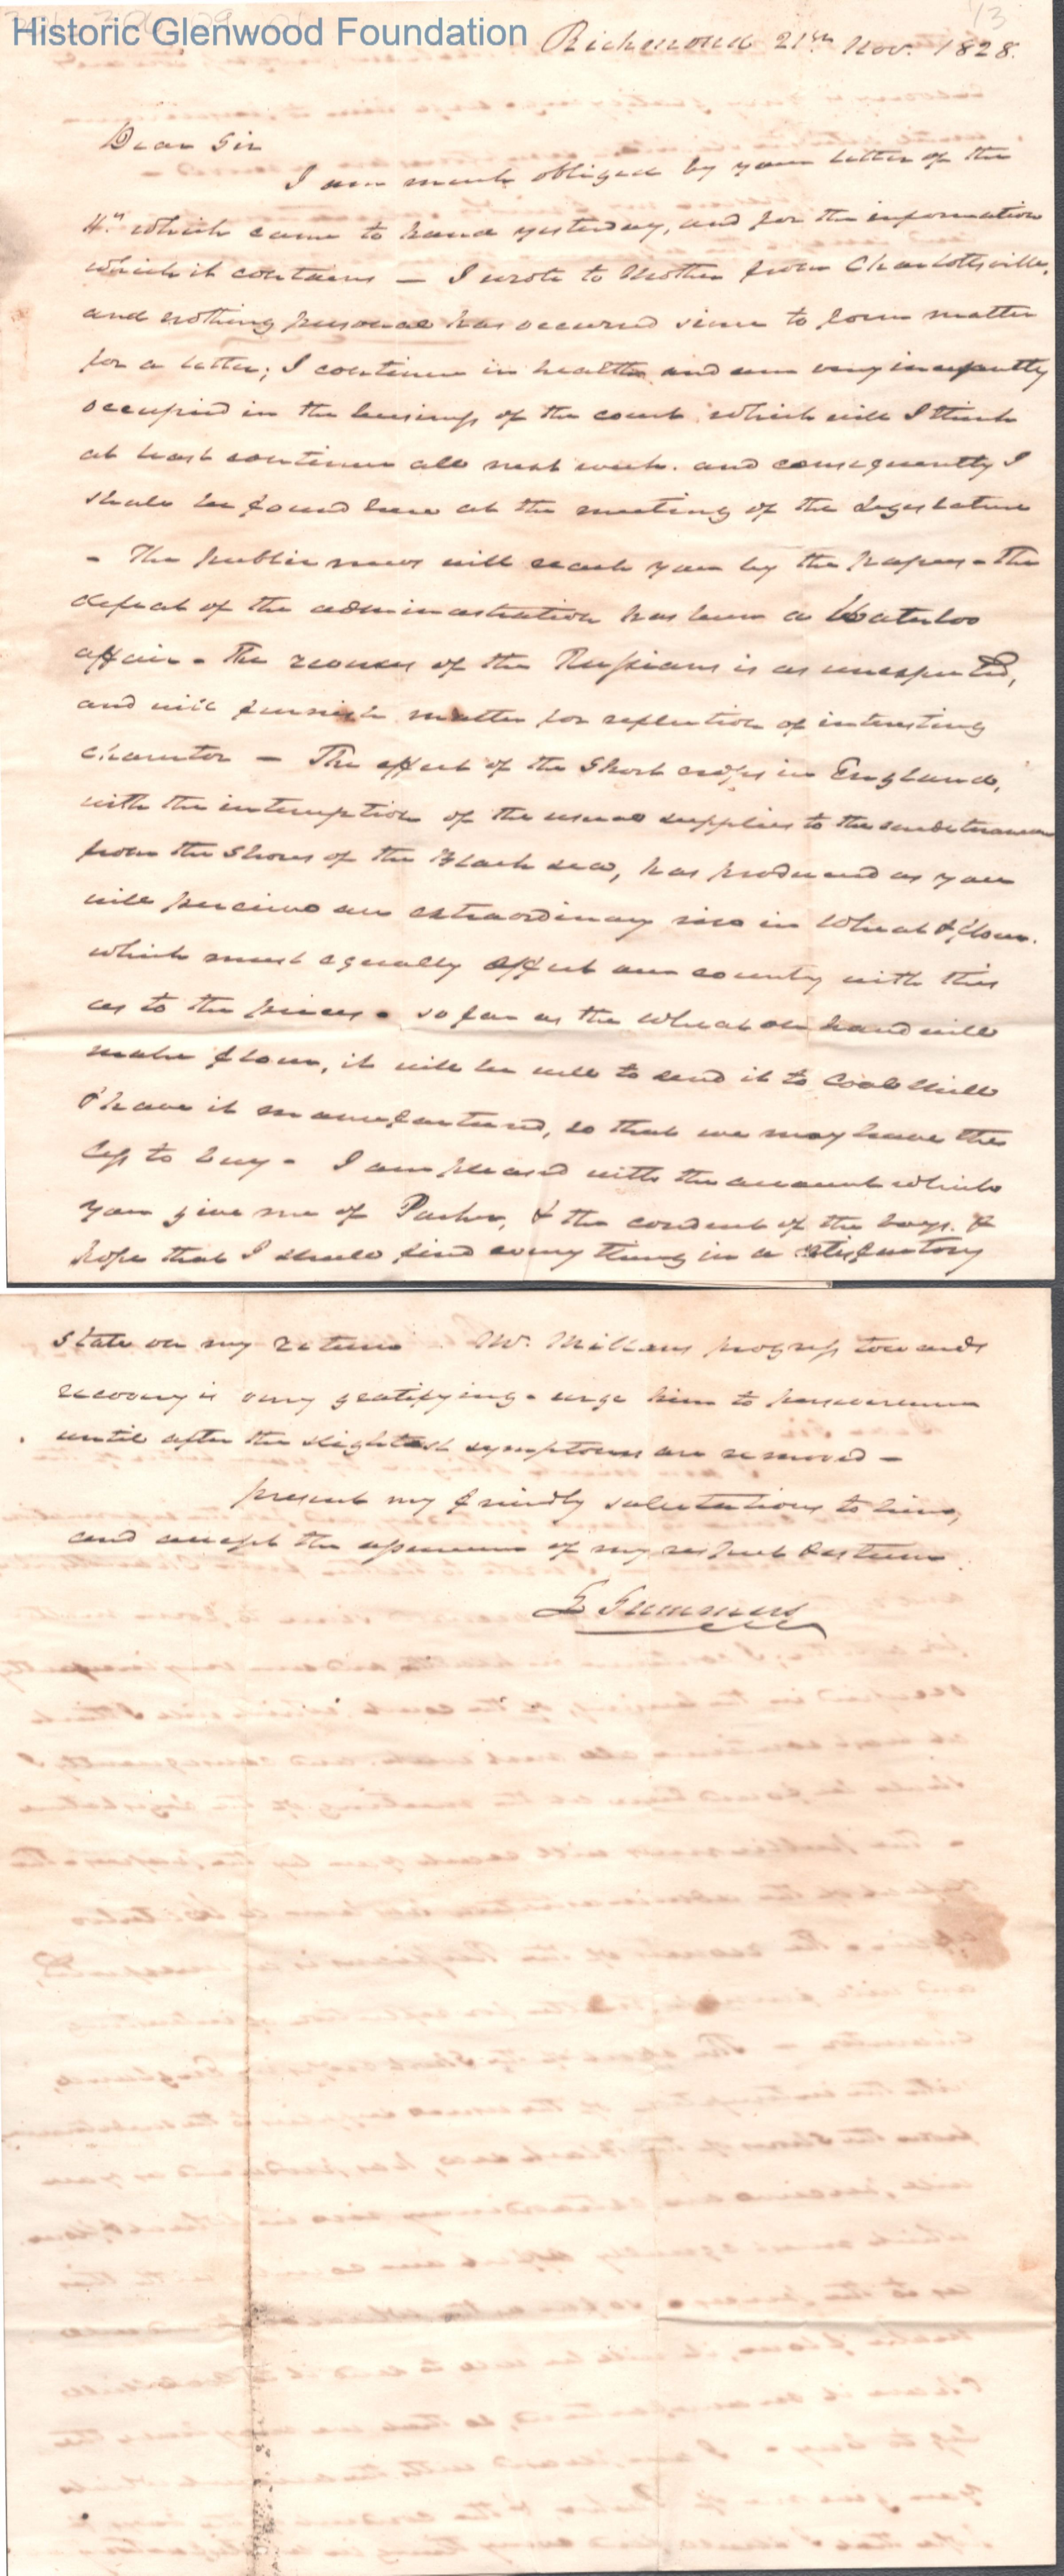 Historic Glenwood Foundation
13
Richmond 21st Nov. 1828.
Dear Sir
I am much obliged by your letter of the
4th which came to hand yesterday, and for the information
which it contains — I wrote to Mother from Charlottsville,
and nothing personal has occurred since to form matter
for a letter; I continue in health and am very incessantly
occupied in the business of the court which will I think
at least continue all next week. and consequently I
shall be found here at the meeting of the Legislature
- The public news will reach you by the papers - The
defeat of the administration has been a Waterloo
affair - The reverses of the Russians is as unexpected,
and will furnish matter for reflection of interesting
character — The effect of the Short crops in England,
with the interruption of the usual supplies to the mediterranean
from the Shores of the Black sea, has produced as you
will perceive an extraordinary rise in Wheat & flour.
which must equally affect our county with this
as to the prices - so far as the Wheat on hand will
make flour, it will be well to send it to Coal
& have it manufactured, so that we may have the
less to buy - I am pleased with the account which
you give me of & the conduct of the boys. &
hope that I shall find every thing in a satisfactory
state on my return. Mr. Millers progress towards
recovery is very gratifying - urge him to perseverence
until after the slightest symptoms are removed —
present my friendly salutations to him,
and accept the assurance of my respect & esteem
L Summers